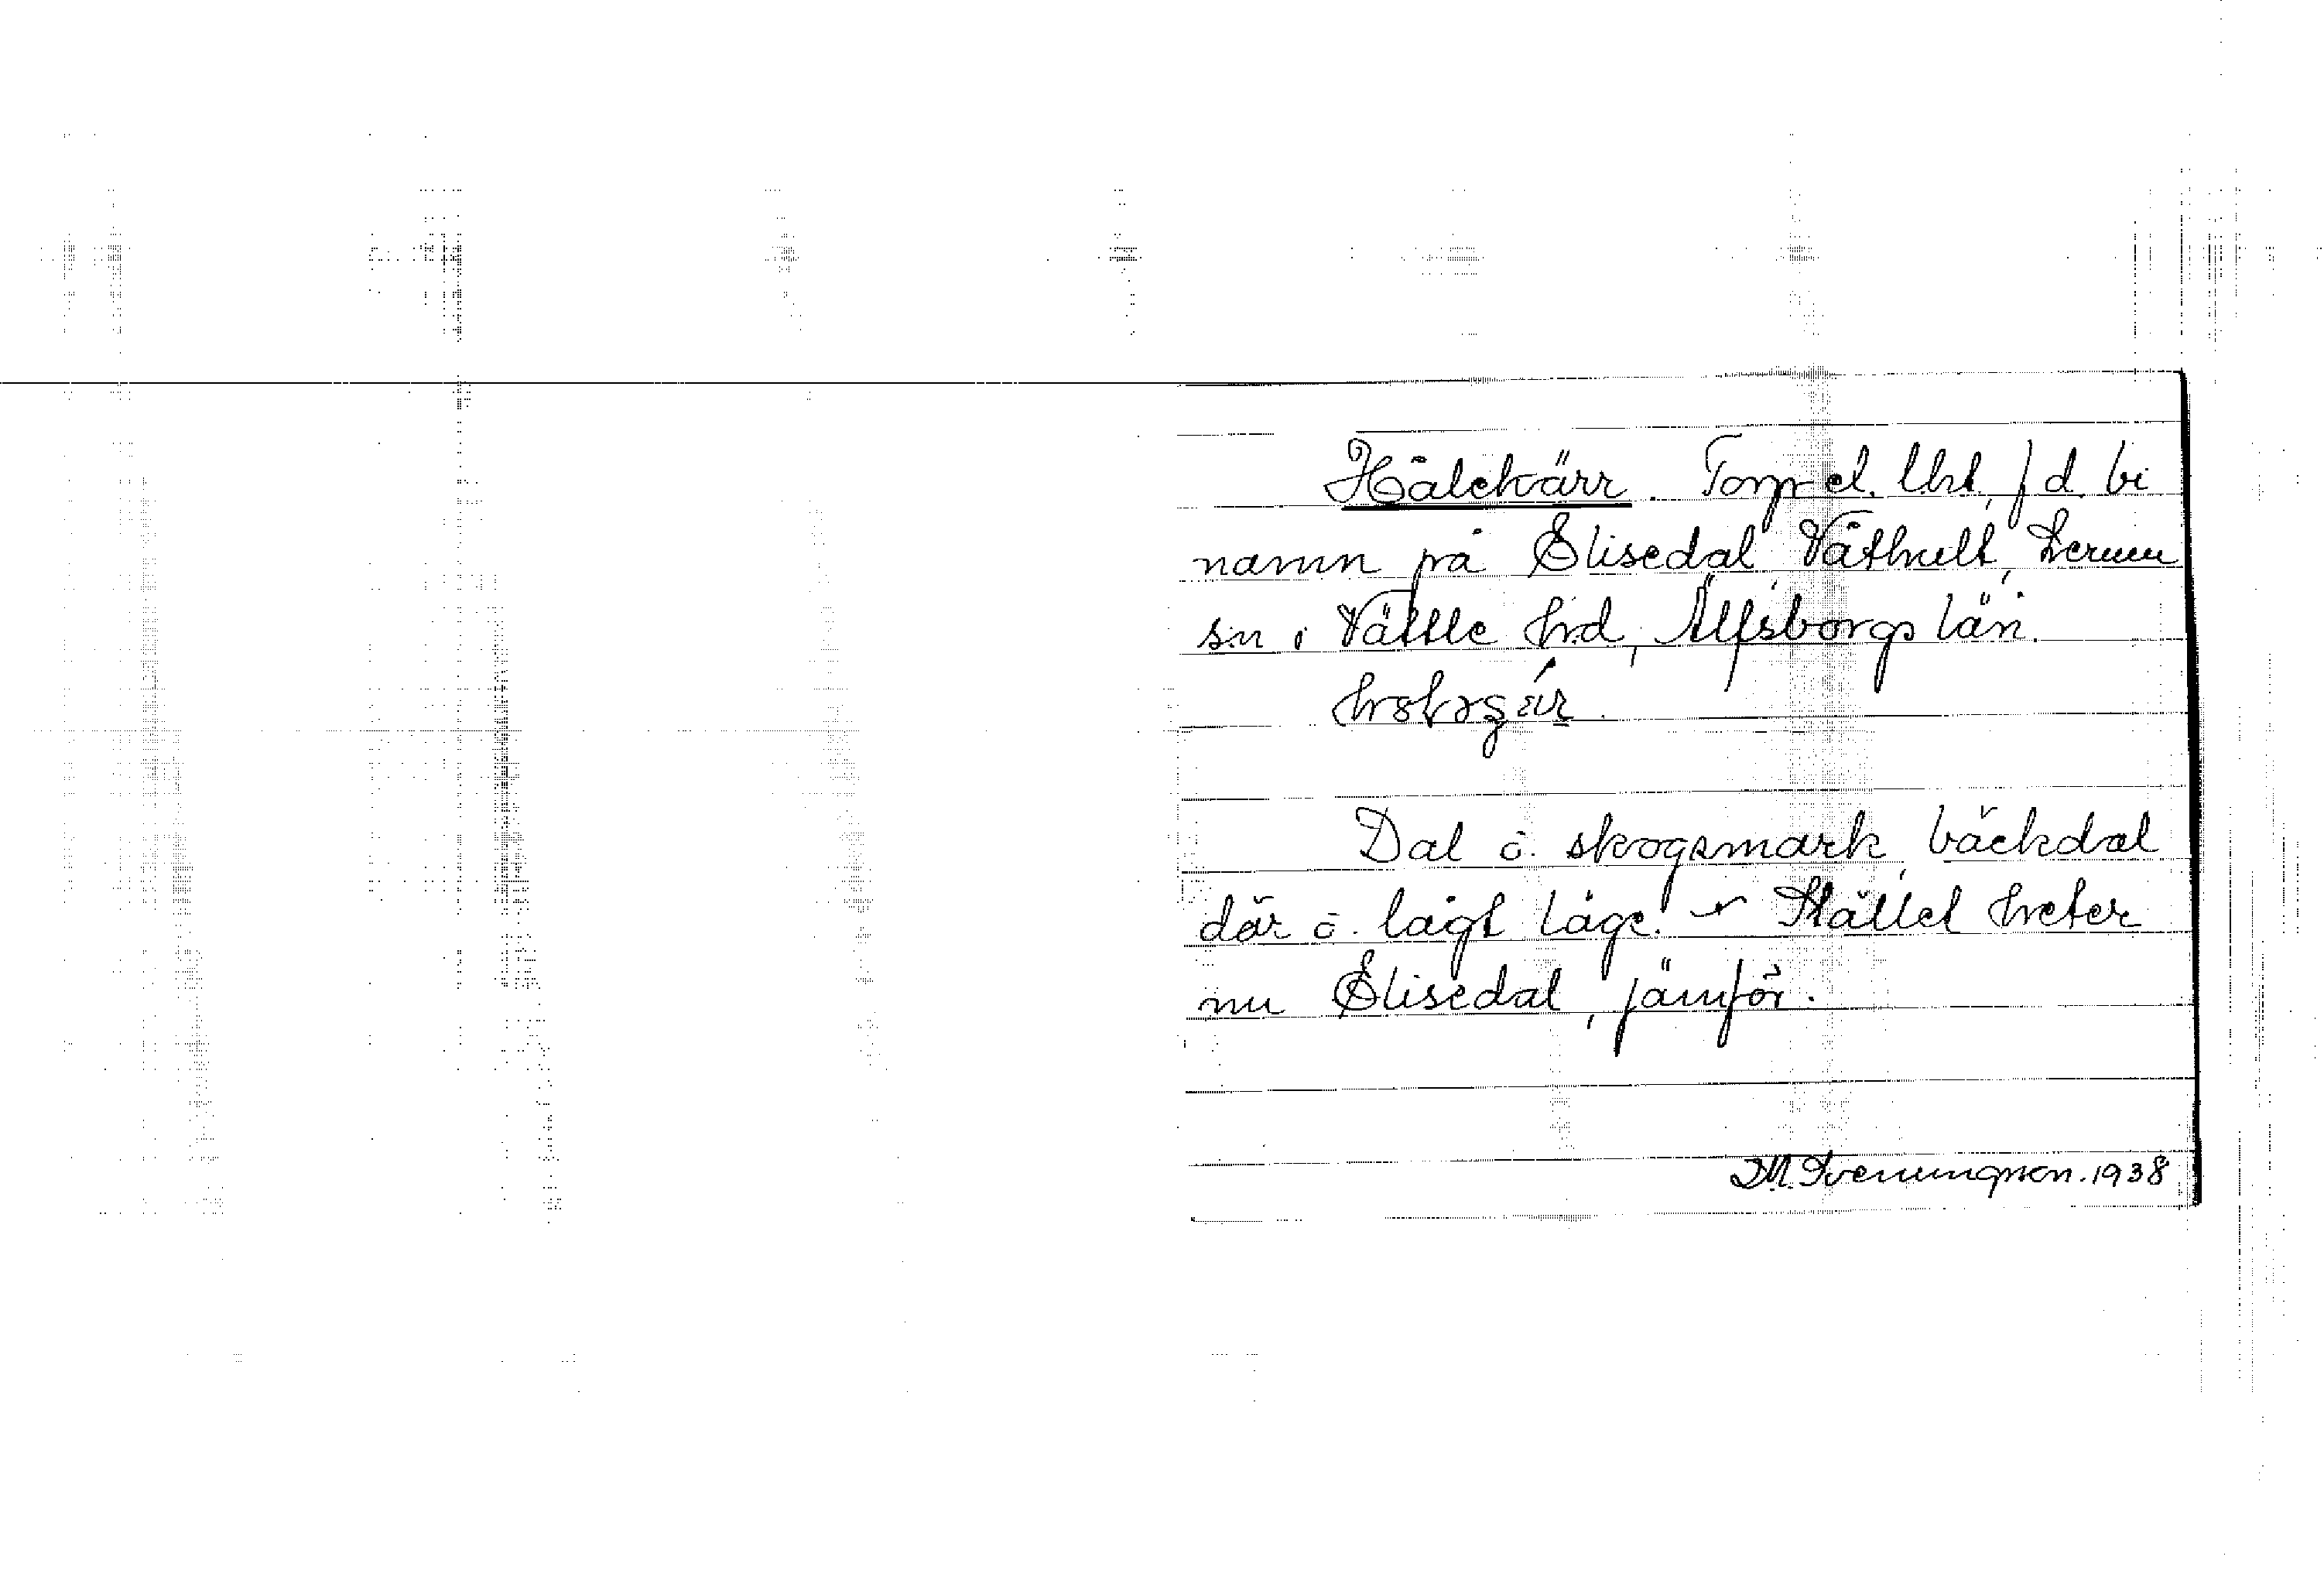 Hålekärr. Torp el. lht, f d. bi
namn på Elisedal, Våthult, Lerum
sn i Vättle hd, Älfsborgs län.
Dal o. skogsmark, bäckdal
där o. lågt läge. Stället heter
nu Elisedal, jämför.
D.M. Svenungson. 1938